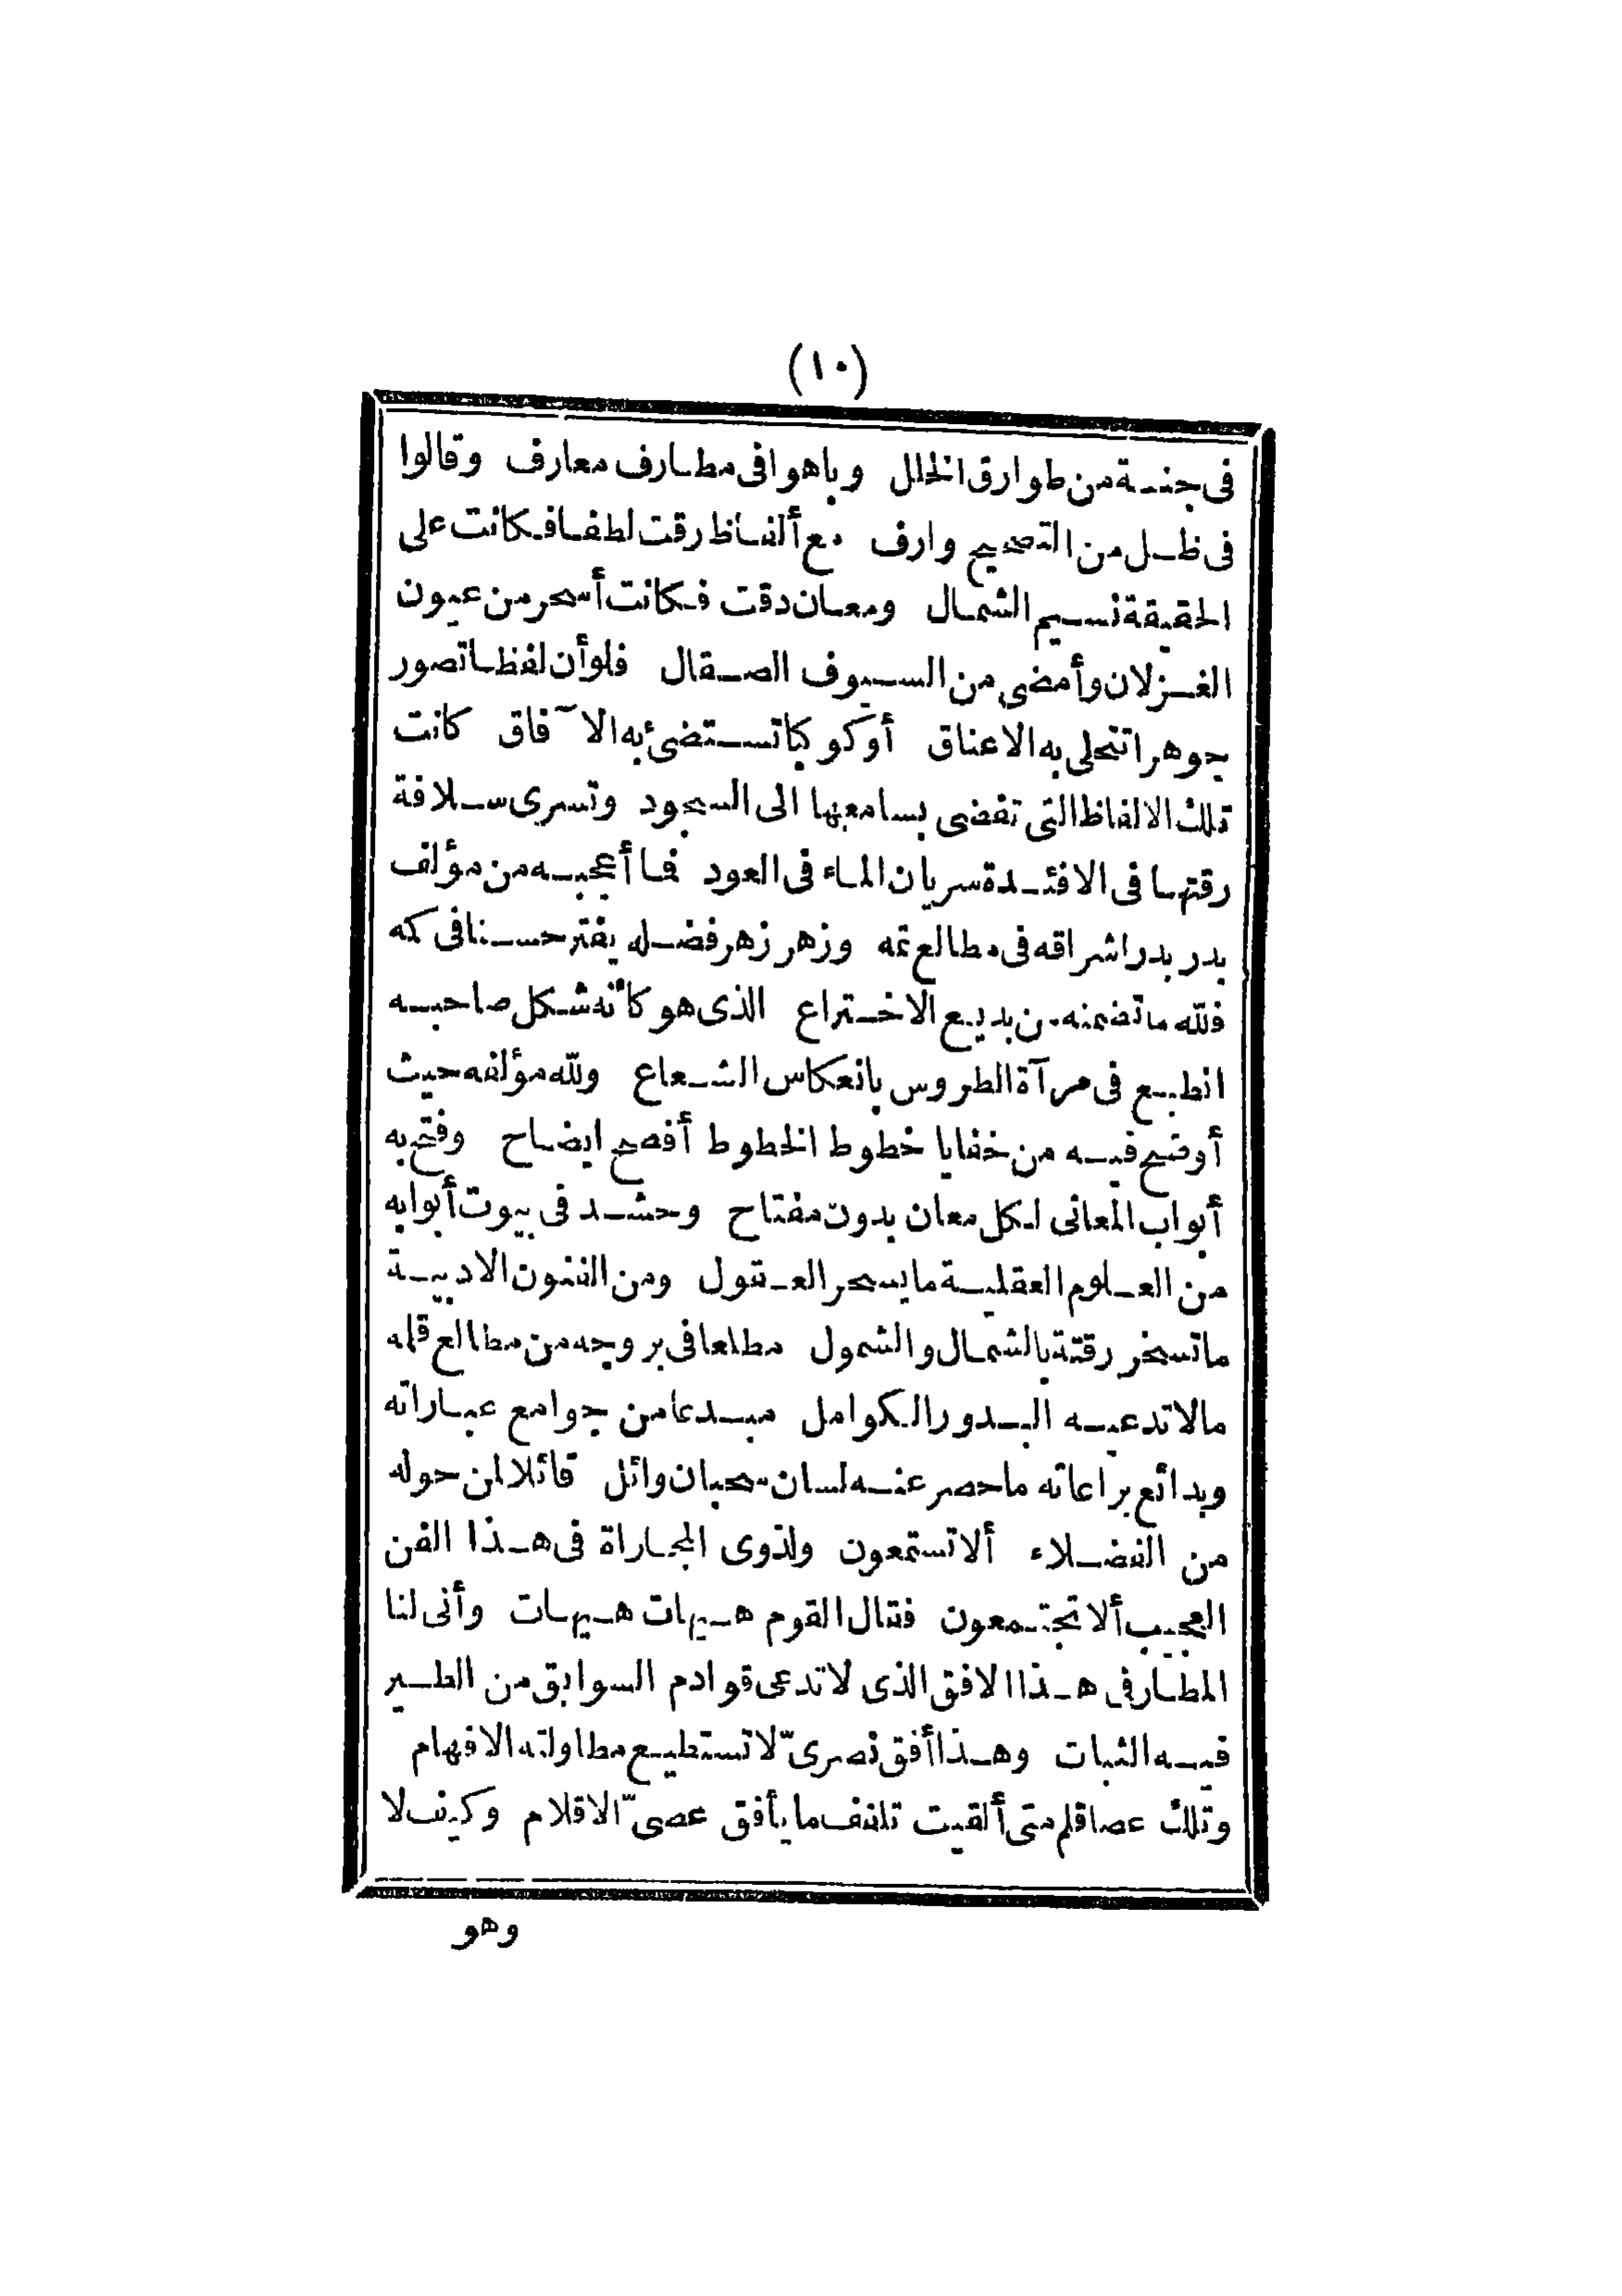 (١٠)
فى جنة من طوارق الخلل وباهوا فى مطارف معارف وقالوا
فى ظل من التصحيح وارف مع ألفاظ رقت لطفا فكانت على
الحقيقة نسيم الشمال ومعان دقت فكانت أسحر من عيون
الغزلان وأمضى من السيوف الصقال فلو أن لفظا تصور
جوهرا تتحلى به الاعناق أو كوكبا تستضئ به الآفاق كانت
تلك الالفاظ التى تفضى بسامعها الى السجود وتسرى سلافة
رقتها فى الافئدة سريان الماء فى العود فما أعجبه من مؤلف
بدر بدر اشراقه فى مطالع تمه وزهر زهر فضله يفتر حسنا فى كمه
فلله ما تضمنه من بديع الاختراع الذى هو كأنه شكل صاحبه
انطبع فى مرآة الطروس بانعكاس الشعاع ولله مؤلفه حيث
أوضح فيه من خفايا خطوط الخطوط أفصح ايضاح وفتح به
أبواب المعانى لكل معان بدون مفتاح وحشد فى بيوت أبوابه
من العلوم العقلية ما يسحر العقول ومن الفنون الادبية
ما تسخر رقته بالشمال والشمول مطلعا فى بروجه من مطالع قلمه
مالا تدعيه البدور الكوامل مبدعا من جوامع عباراته
وبدائع براعاته ما حصر عنه لسان سحبان وائل قائلا لمن حوله
من الفضلاء ألا تستمعون ولذوى المجاراة فى هذا الفن
العجيب ألا تجتمعون فقال القوم هيهات هيهات وأنى لنا
المطار فى هذا الافق الذى لا تدعى قوادم السوابق من الطير
فيه الثبات وهذا أفق نصرىّ لا تستطيع مطاولته الافهام
وتلك عصا قلم متى ألقيت تلقف ما يأفق عصىّ الاقلام وكيف لا
وهو